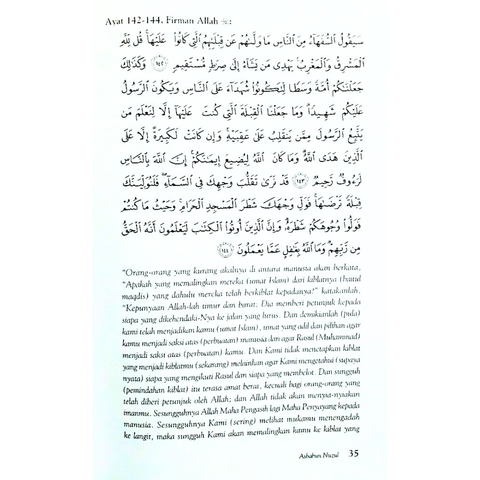 Ayat 142-144, Firman Allah ﷻ:
سَيَقُولُ ٱلسُّفَهَآءُ مِنَ ٱلنَّاسِ مَا وَلَّىٰهُمْ عَن قِبْلَتِهِمُ ٱلَّتِى كَانُوا۟ عَلَيْهَا ۚ قُل لِّلَّهِ
ٱلْمَشْرِقُ وَٱلْمَغْرِبُ ۚ يَهْدِى مَن يَشَآءُ إِلَىٰ صِرَٰطٍ مُّسْتَقِيمٍ ﴿١٤٢﴾ وَكَذَٰلِكَ
جَعَلْنَٰكُمْ أُمَّةً وَسَطًا لِّتَكُونُوا۟ شُهَدَآءَ عَلَى ٱلنَّاسِ وَيَكُونَ ٱلرَّسُولُ
عَلَيْكُمْ شَهِيدًا ۗ وَمَا جَعَلْنَا ٱلْقِبْلَةَ ٱلَّتِى كُنتَ عَلَيْهَآ إِلَّا لِنَعْلَمَ مَن
يَتَّبِعُ ٱلرَّسُولَ مِمَّن يَنقَلِبُ عَلَىٰ عَقِبَيْهِ ۚ وَإِن كَانَتْ لَكَبِيرَةً إِلَّا عَلَى
ٱلَّذِينَ هَدَى ٱللَّهُ ۗ وَمَا كَانَ ٱللَّهُ لِيُضِيعَ إِيمَٰنَكُمْ ۚ إِنَّ ٱللَّهَ بِٱلنَّاسِ
لَرَءُوفٌ رَّحِيمٌ ﴿١٤٣﴾ قَدْ نَرَىٰ تَقَلُّبَ وَجْهِكَ فِى ٱلسَّمَآءِ ۖ فَلَنُوَلِّيَنَّكَ
قِبْلَةً تَرْضَىٰهَا ۚ فَوَلِّ وَجْهَكَ شَطْرَ ٱلْمَسْجِدِ ٱلْحَرَامِ ۚ وَحَيْثُ مَا كُنتُمْ
فَوَلُّوا۟ وُجُوهَكُمْ شَطْرَهُۥ ۗ وَإِنَّ ٱلَّذِينَ أُوتُوا۟ ٱلْكِتَٰبَ لَيَعْلَمُونَ أَنَّهُ ٱلْحَقُّ
مِن رَّبِّهِمْ ۗ وَمَا ٱللَّهُ بِغَٰفِلٍ عَمَّا يَعْمَلُونَ ﴿١٤٤﴾
"Orang-orang yang kurang akalnya di antara manusia akan berkata,
"Apakah yang memalingkan mereka (umat Islam) dari kiblatnya (baitul
maqdis) yang dahulu mereka telah berkiblat kepadanya?" katakanlah,
"Kepunyaan Allah-lah timur dan barat; Dia memberi petunjuk kepada
siapa yang dikehendaki-Nya ke jalan yang lurus. Dan demikian (pula)
kami telah menjadikan kamu (umat Islam), umat yang adil dan pilihan agar
kamu menjadi saksi atas (perbuatan) manusia dan agar Rasul (Muhammad)
menjadi saksi atas (perbuatan) kamu. Dan Kami tidak menetapkan kiblat
yang menjadi kiblatmu (sekarang) melainkan agar Kami mengetahui (supaya
nyata) siapa yang mengikuti Rasul dan siapa yang membelot. Dan sungguh
(pemindahan kiblat) itu terasa amat berat, kecuali bagi orang-orang yang
telah diberi petunjuk oleh Allah; dan Allah tidak akan menyia-nyiakan
imanmu. Sesungguhnya Allah Maha Pengasih lagi Maha Penyayang kepada
manusia. Sesungguhnya Kami (sering) melihat mukamu menengadah
ke langit, maka sungguh Kami akan memalingkan kamu ke kiblat yang
Asbabun Nuzul 35